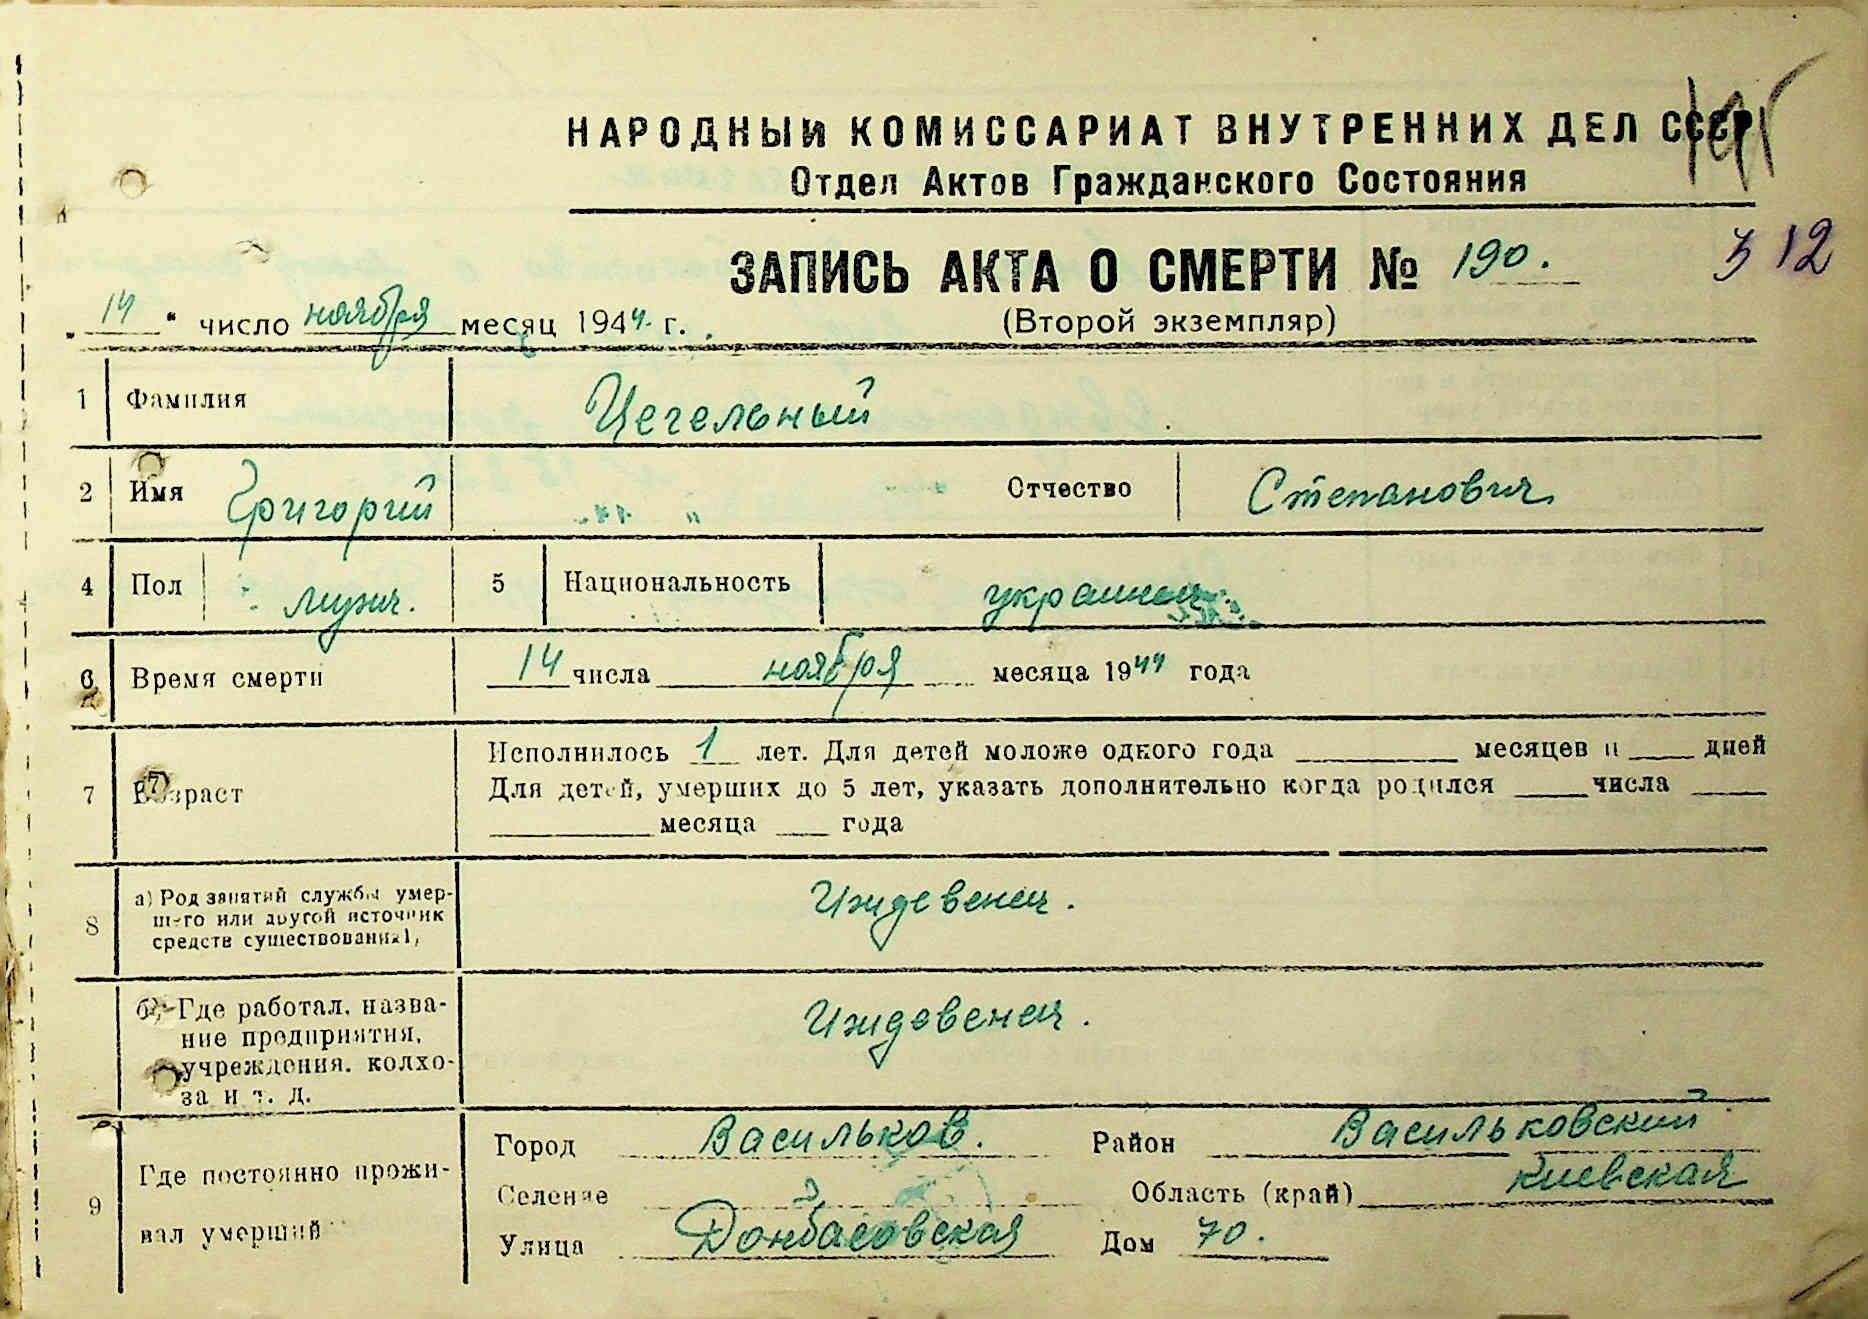 НАРОДНЫЙ КОМИССАРИАТ ВНУТРЕННИХ ДЕЛ СССР
Отдел Актов Гражданского Состояния
ЗАПИСЬ АКТА О СМЕРТИ № 190.
312
„14“ число ноября месяц 1944 г.
(Второй экземпляр)
1 Фамилия Цегельный
2 Имя Григорий Отчество Степанович
4 Пол мужч. 5 Национальность украинец
6 Время смерти 14 числа ноября месяца 1944 года
7 Возраст Исполнилось 1 лет. Для детей моложе одного года месяцев и дней
Для детей, умерших до 5 лет, указать дополнительно когда родился числа
месяца года
8 а) Род занятий службы умер-
шего или другой источник
средств существования,
Иждевенец.
б) Где работал, назва-
ние предприятия,
учреждения, колхо-
за и т. д.
Иждевенец.
9 Где постоянно прожи-
вал умерший
Город Васильков. Район Васильковский
Селение Область (край) Киевская
Улица Донбасовская Дом 70.